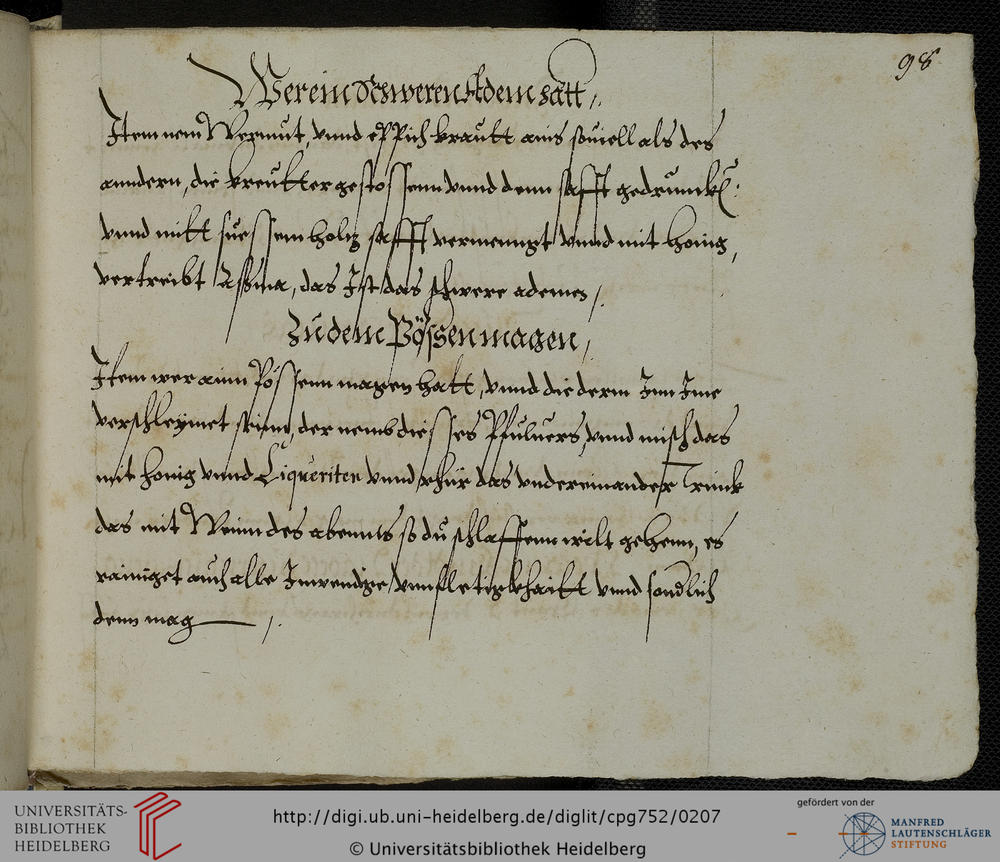 98
Wer ein Schweren Adem hatt /.
Item nem Wermut, vnnd eppich krautt ains souiell als des
anndern, die kreutter gestossenn vnnd denn safft getrunckh:
vnnd mitt suessem holtz safft vermenngt vnnd mit honig,
vertreibt Assma, das Ist das schwere ademen /.
Zu dem Bössen magen /.
Item wer ainn Pössenn magen hatt, vnnd die derm Inn Ime
verschleymet seinn, der nemb disses Pfuluers, vnnd misch das
mit honig vnnd Liqueriten vnnd rhür das vndereinander Trinck
das mit Weinn des abennts so du schlaffenn wilt gehenn, es
rainiget auch alle Inwendige vnnfletigkhaitt vnnd sonndlich
denn mag /.
UNIVERSITÄTS-
BIBLIOTHEK
HEIDELBERG
http://digi.ub.uni-heidelberg.de/diglit/cpg752/0207
© Universitätsbibliothek Heidelberg
gefördert von der
MANFRED
LAUTENSCHLÄGER
STIFTUNG